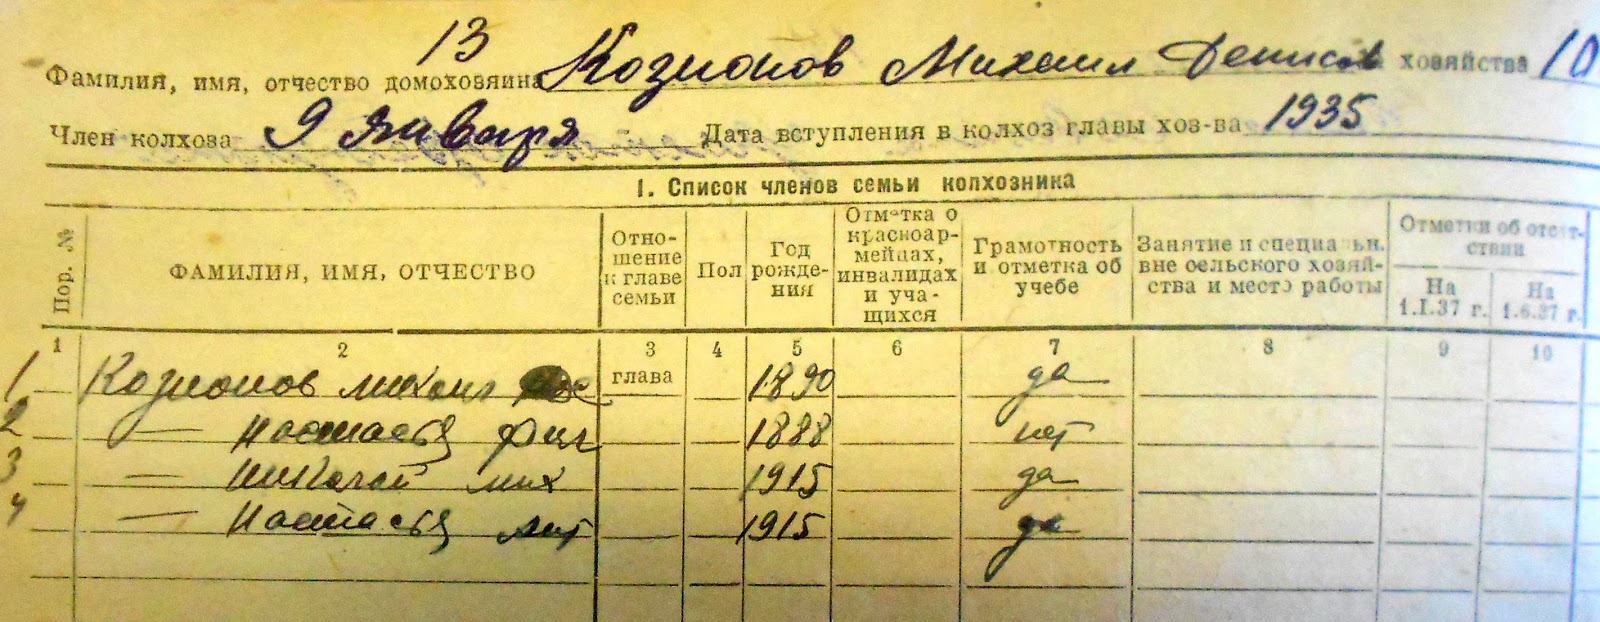 13
Фамилия, имя, отчество домохозяина Козионов Михаил Денисов хозяйства 10
Член колхоза 9 Января Дата вступления в колхоз главы хоз-ва 1935
1. Список членов семьи колхозника
Пор. № ФАМИЛИЯ, ИМЯ, ОТЧЕСТВО Отно-шение к главе семьи Пол Год рожде-ния Отметка о красноар-мейцах, инвалидах и уча-щихся Грамотность и отметка об учебе Занятие и специальн. вне сельского хозяй-ства и место работы Отметки об отсут-ствии На 1.I.37 г. На 1.6.37 г.
1 2 3 4 5 6 7 8 9 10
1 Козионов Михаил глава 1890 да
2 — Настасья Фил 1888 нет
3 — Николай Мих 1915 да
4 — Настасья 1915 да